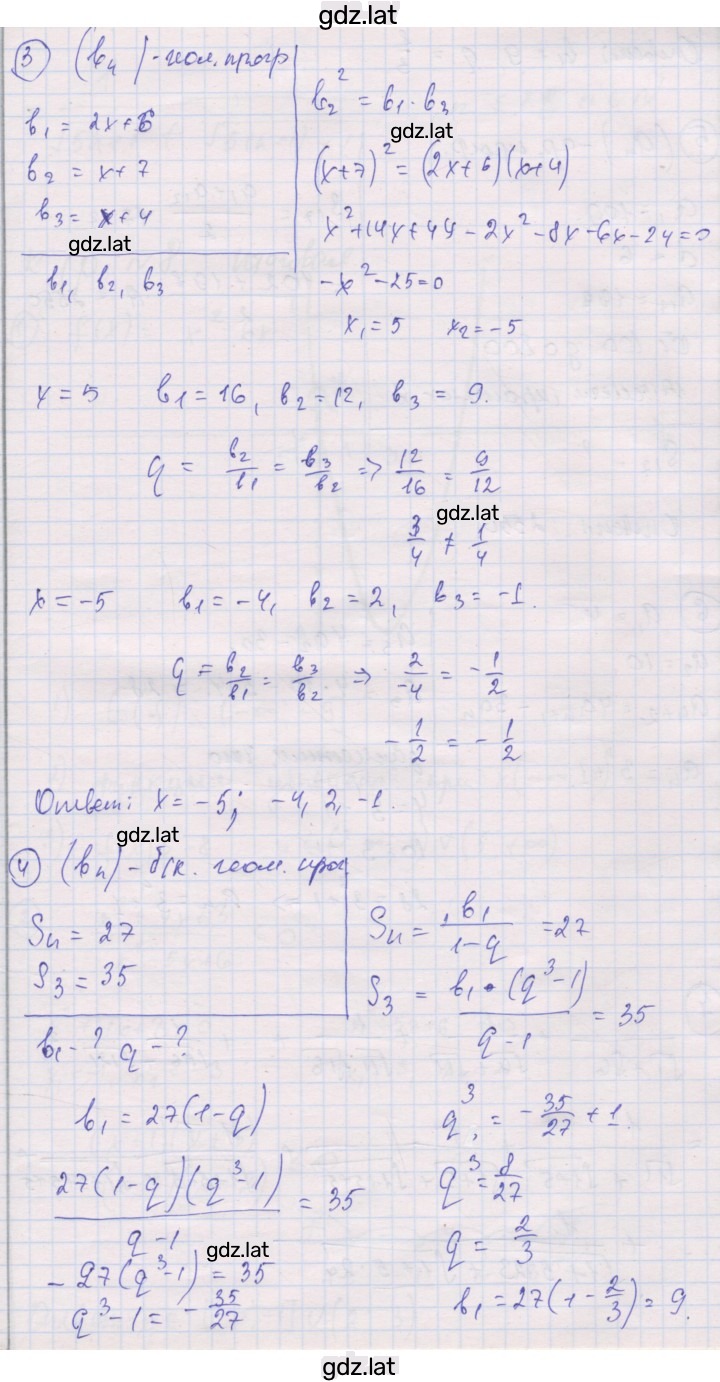 gdz.lat
3 (bn) - геом. прогр
b1 = 2x+6
b2 = x+7
b3 = x+4
gdz.lat
b1, b2, b3
b2² = b1 · b3
gdz.lat
(x+7)² = (2x+6)(x+4)
x²+14x+49-2x²-8x-6x-24=0
-x²-25=0
x1=5 x2=-5
x=5 b1=16, b2=12, b3=9.
q = b2/b1 = b3/b2 => 12/16 = 9/12
gdz.lat
3/4 ≠ 1/4
x=-5 b1=-4, b2=2, b3=-1.
q = b2/b1 = b3/b2 => 2/-4 = -1/2
-1/2 = -1/2
Ответ: x=-5; -4, 2, -1.
gdz.lat
4 (bn) - бск. геом. прог
Sn = 27
S3 = 35
b1-? q-?
Sn = b1/1-q =27
S3 = b1·(q³-1)/q-1 = 35
b1 = 27(1-q)
27(1-q)(q³-1)/q-1 = 35
gdz.lat
-27(q³-1) = 35
q³-1 = -35/27
q³ = -35/27 + 1.
q³=8/27
q = 2/3
b1=27(1-2/3)=9.
gdz.lat